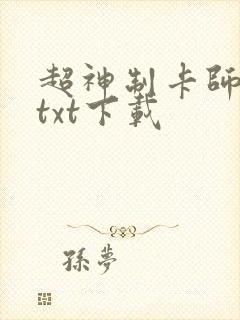 超神制卡師
txt下載
孫夢